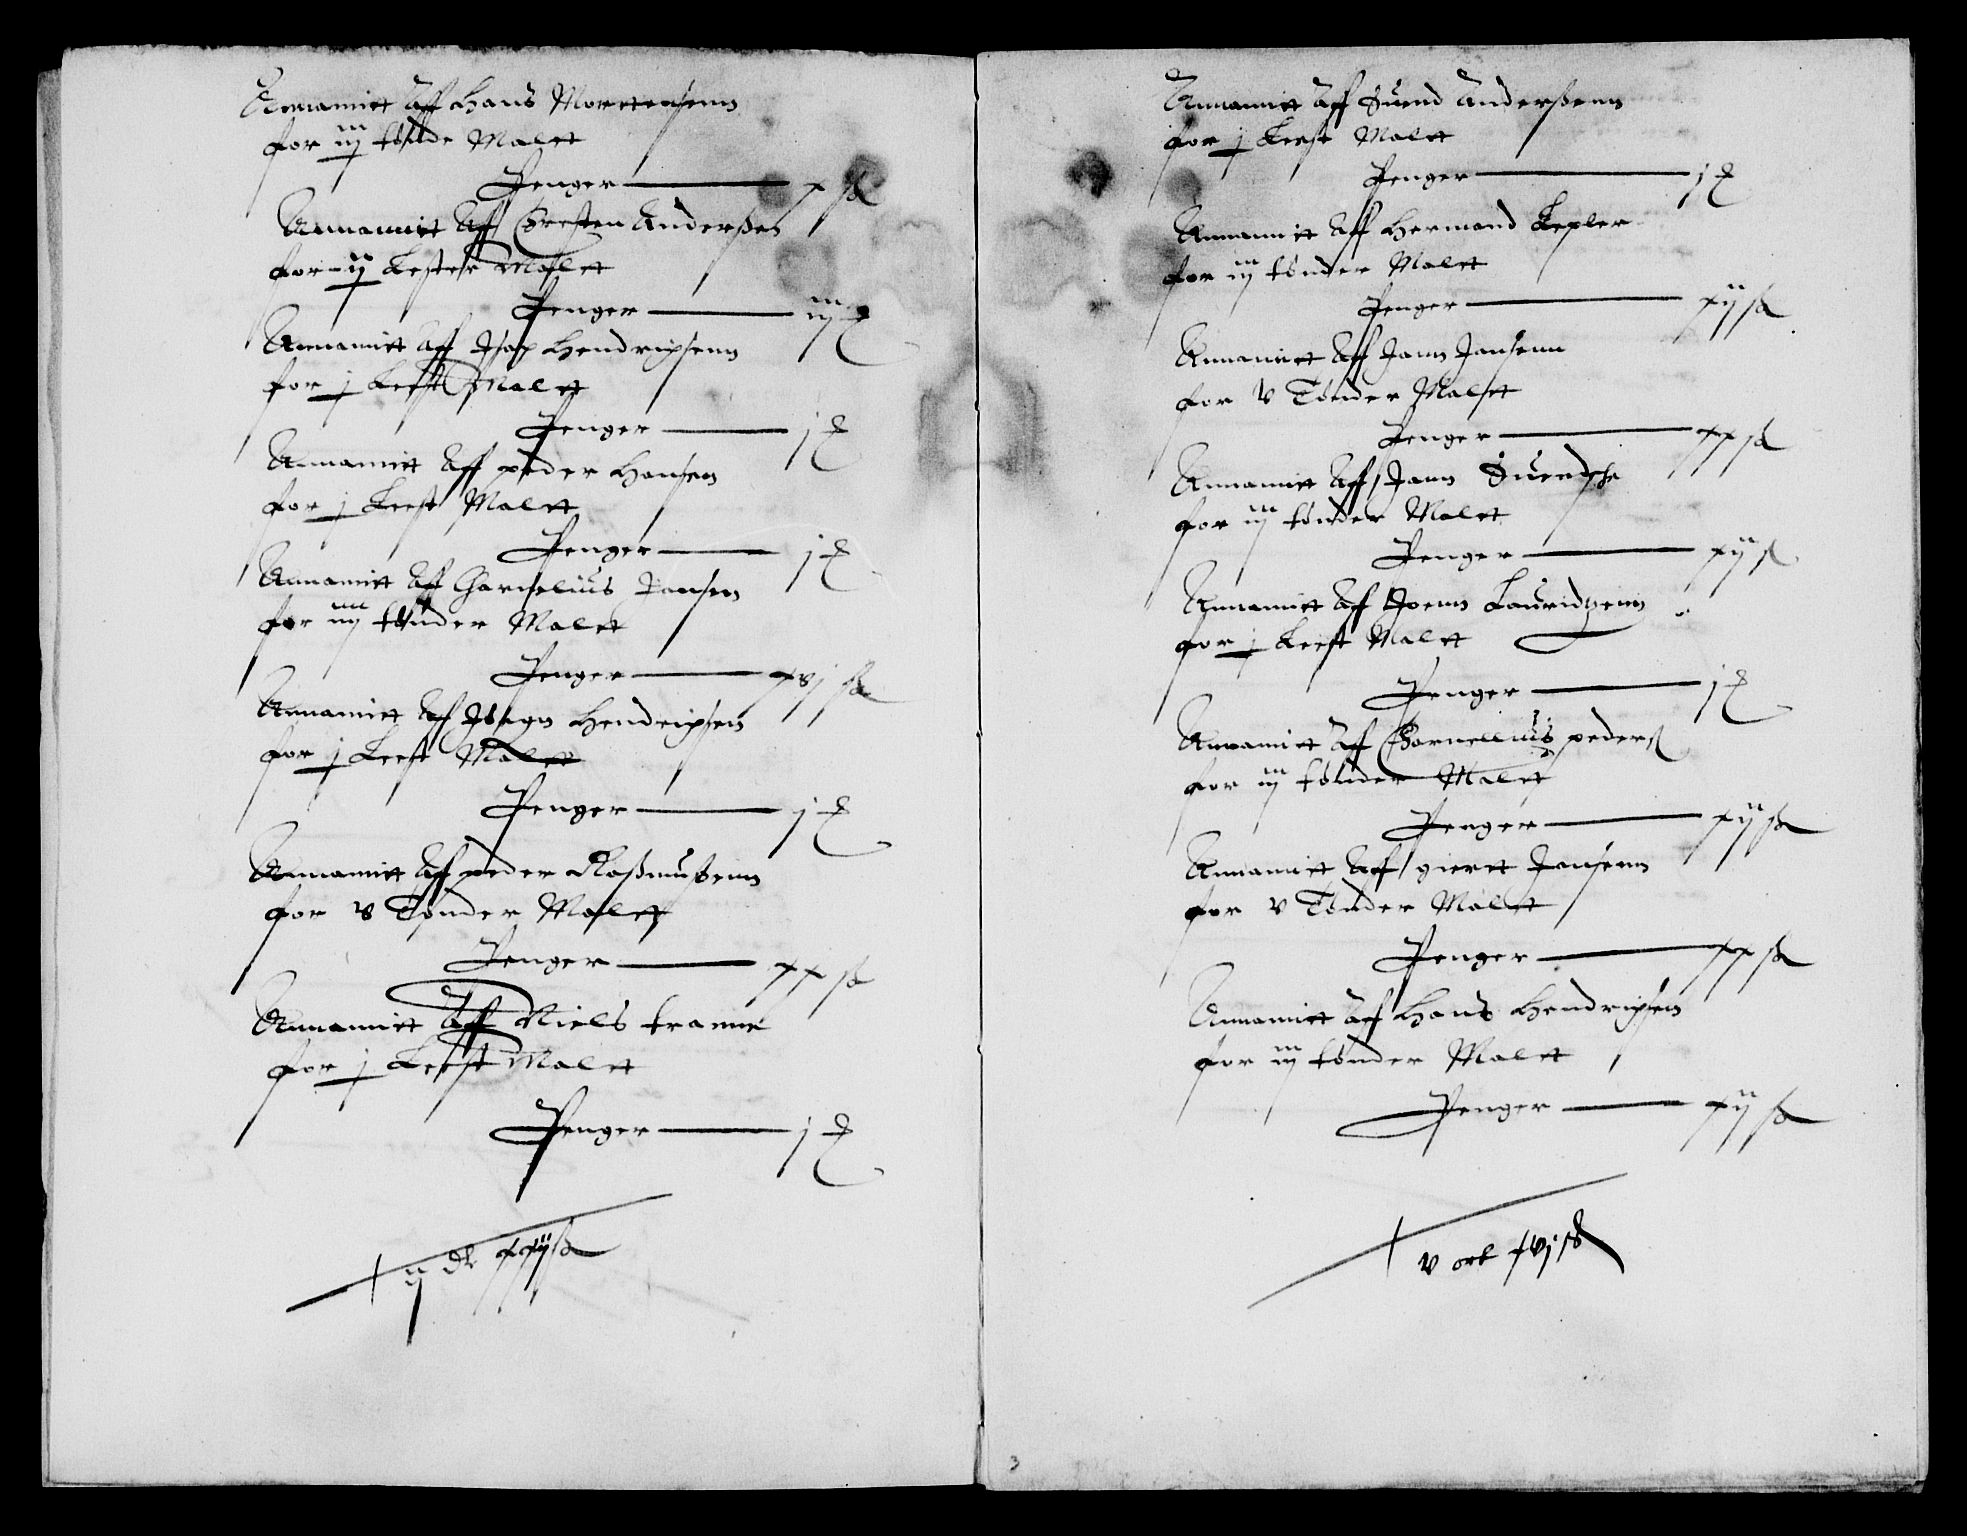 Annamitt Aff Hans Mortensenn
for iij tønde Malet
Penger — x sk
Annamitt Aff Chresten Anderßen
for ij Lester Malet
Penger — iij
Annamitt Aff Hendrichsenn
for j Lest Malet
Penger — j
Annamitt Aff peder Hansen
for j Lest Malet
Penger — j
Annamitt Aff Cornelius Jansen
for iiij tønder Malet
Penger — xvj sk
Annamitt Aff Hendrichsen
for j Lest Malet
Penger — j
Annamitt Aff peder Raßmußenn
for v Tønder Malet
Penger — xx sk
Annamitt Aff Niels tranne
for j Lest Malet
Penger — j
ij dl xxij sk
Annamitt Aff Suend Anderßenn
for j Lest Malet
Penger — j
Annamitt Aff Hermand Kepler
for iij tønder Malet
Penger — xij sk
Annamitt Aff Jann Jansenn
for v Tønder Malet
Penger — xx sk
Annamitt Aff Jann Suendsche
for iij tønder Malet
Penger — xij sk
Annamitt Aff Joenn Lauridzenn
for j Lest Malet
Penger — j
Annamitt Aff Cornellius peders
for iij tønder Malet
Penger — xij sk
Annamitt Aff giert Jansenn
for v Tønder Malet
Penger — xx sk
Annamitt Aff Hans Hendrichsen
for iij tønder Malet
Penger — xij sk
v ort xvj sk
3